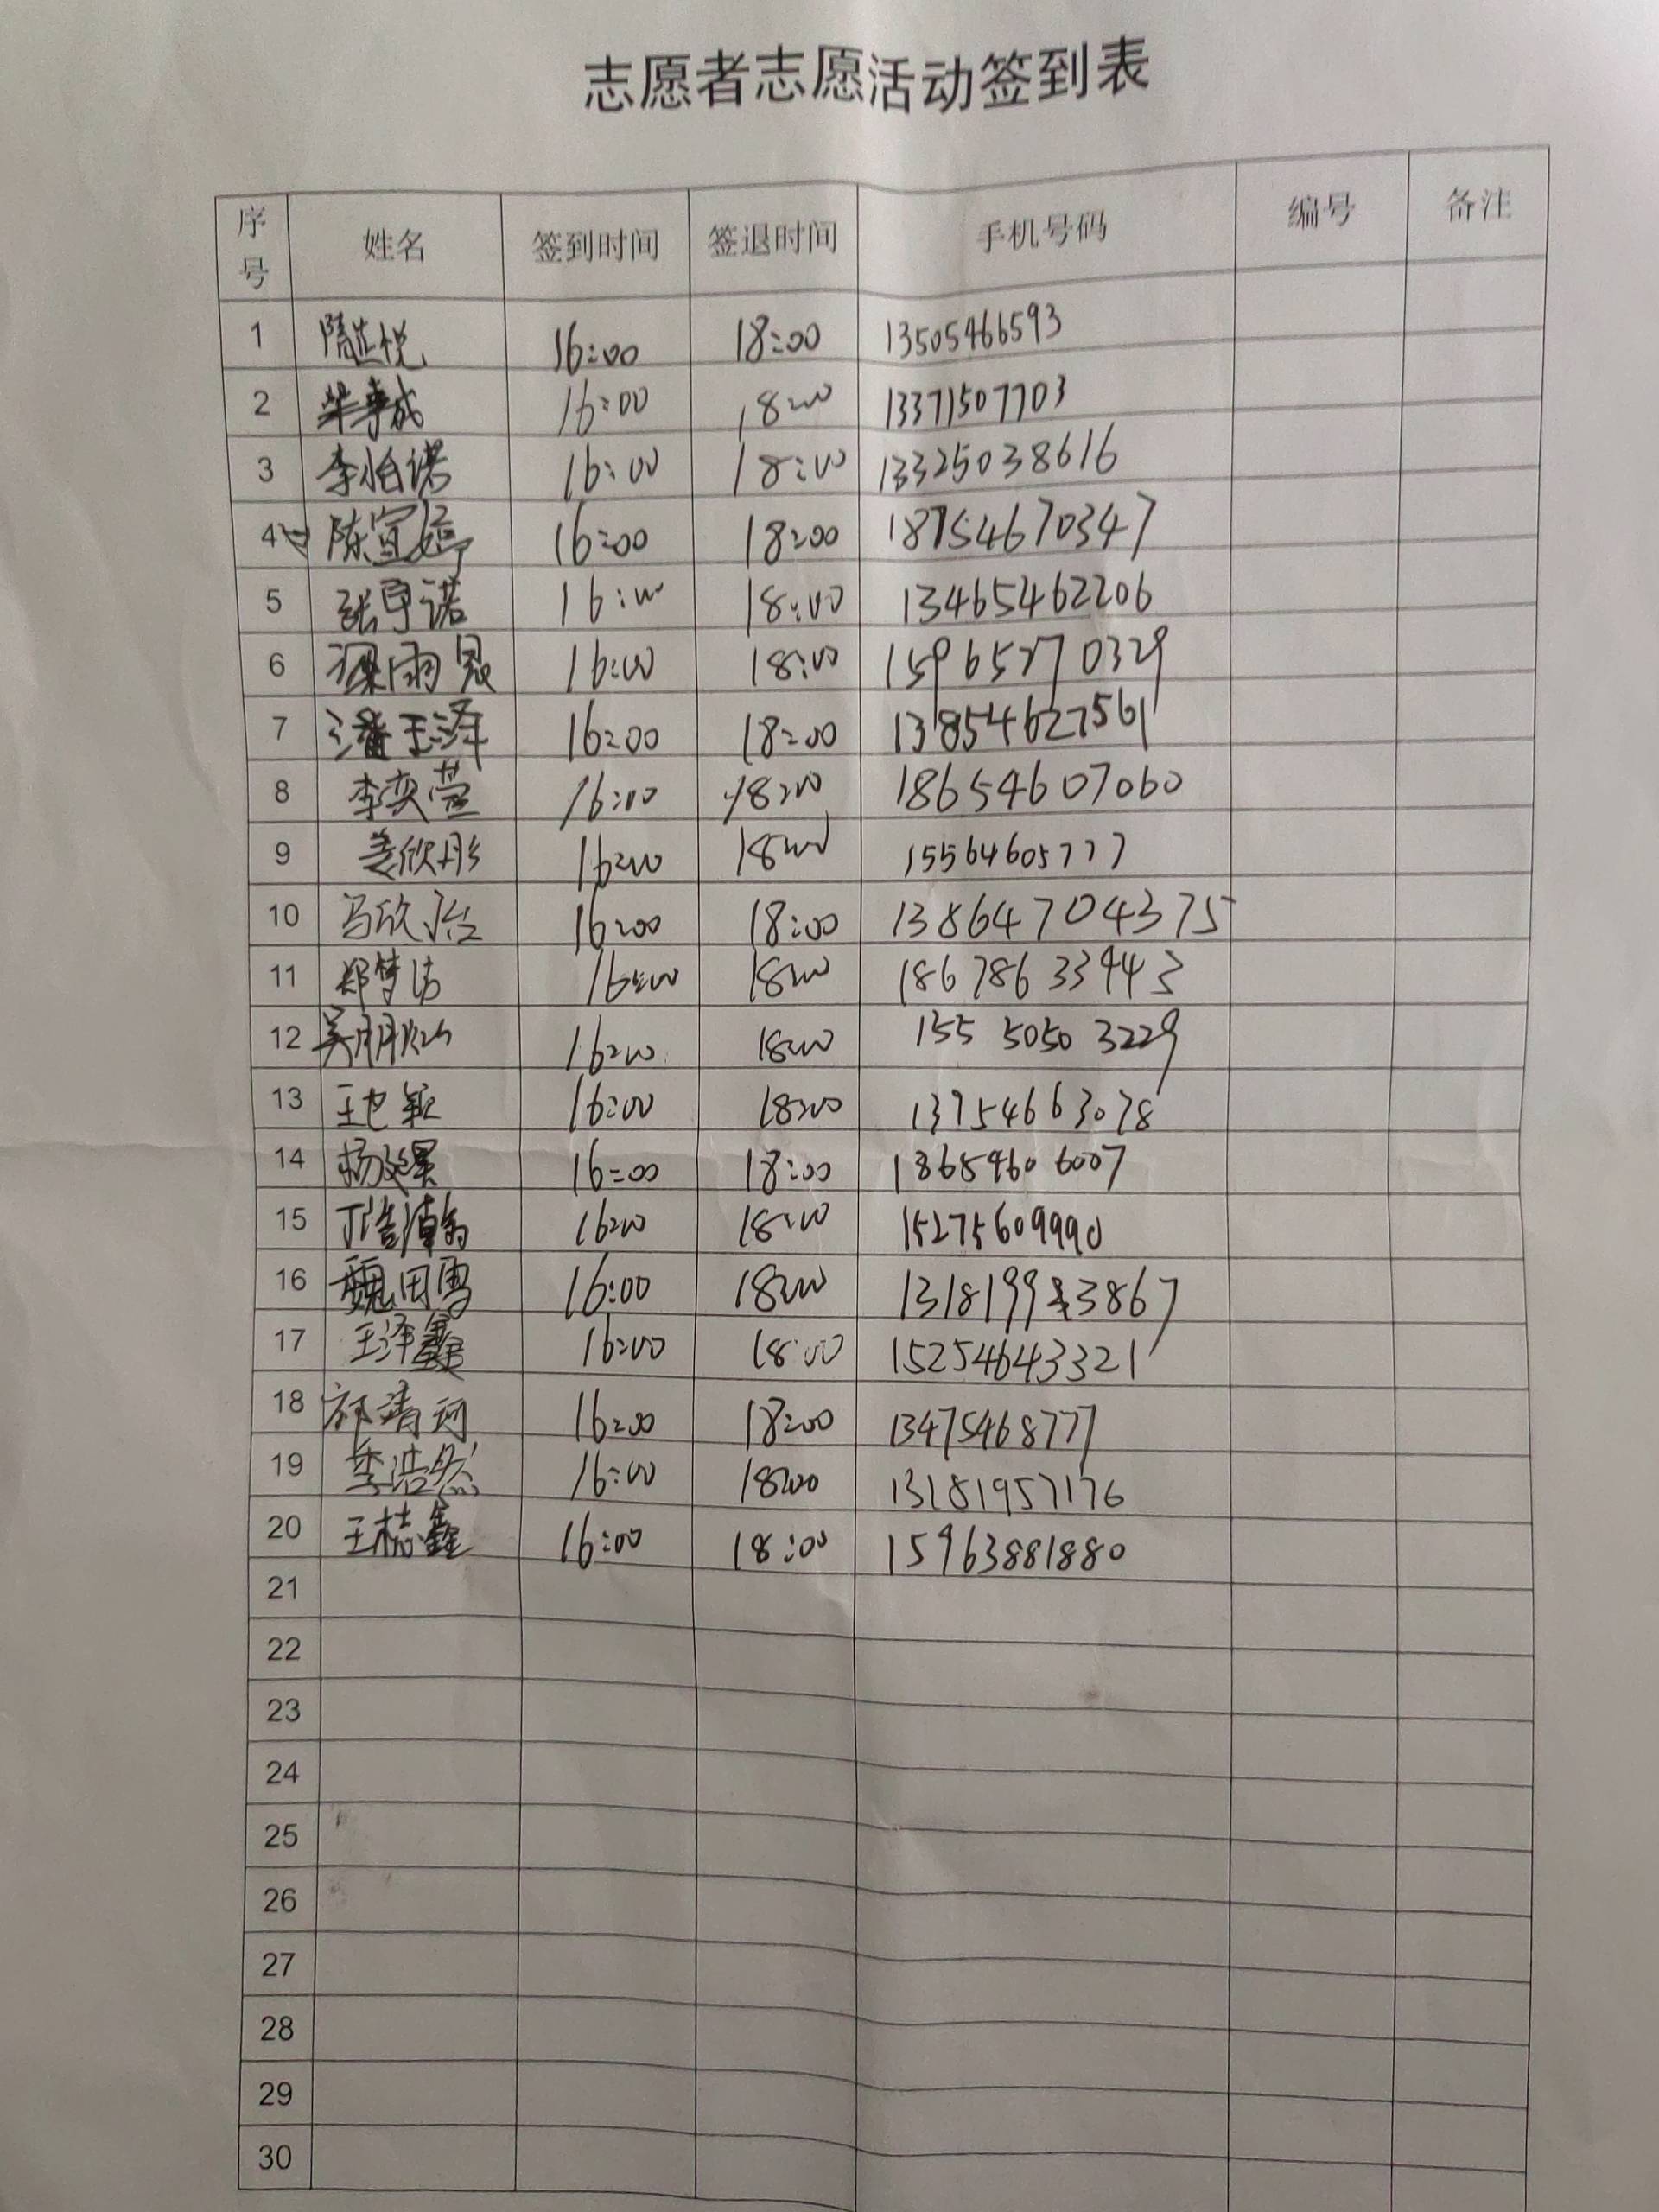 志愿者志愿活动签到表
序号 姓名 签到时间 签退时间 手机号码 编号 备注
1 隋芷悦 16:00 18:00 13505466593
2 16:00 18:00 13371507703
3 李怡诺 16:00 18:00 13325038616
4 陈宣婷 16:00 18:00 18754670347
5 张宇诺 16:00 18:00 13465462206
6 16:00 18:00 15965270329
7 潘玉泽 16:00 18:00 13854627561
8 李奕萱 16:00 18:00 18654607060
9 姜欣彤 16:00 18:00 15564605777
10 冯欣怡 16:00 18:00 13864704375
11 郑梦洁 16:00 18:00 18678633943
12 16:00 18:00 155 5050 3229
13 16:00 18:00 13754663078
14 16:00 18:00 18654606007
15 丁浩瀚 16:00 18:00 15275609990
16 魏田雪 16:00 18:00 1318199 3867
17 王泽鑫 16:00 18:00 15254643321
18 祁清珂 16:00 18:00 13475468777
19 李浩然 16:00 18:00 13181957176
20 王梽鑫 16:00 18:00 15963881880
21
22
23
24
25
26
27
28
29
30